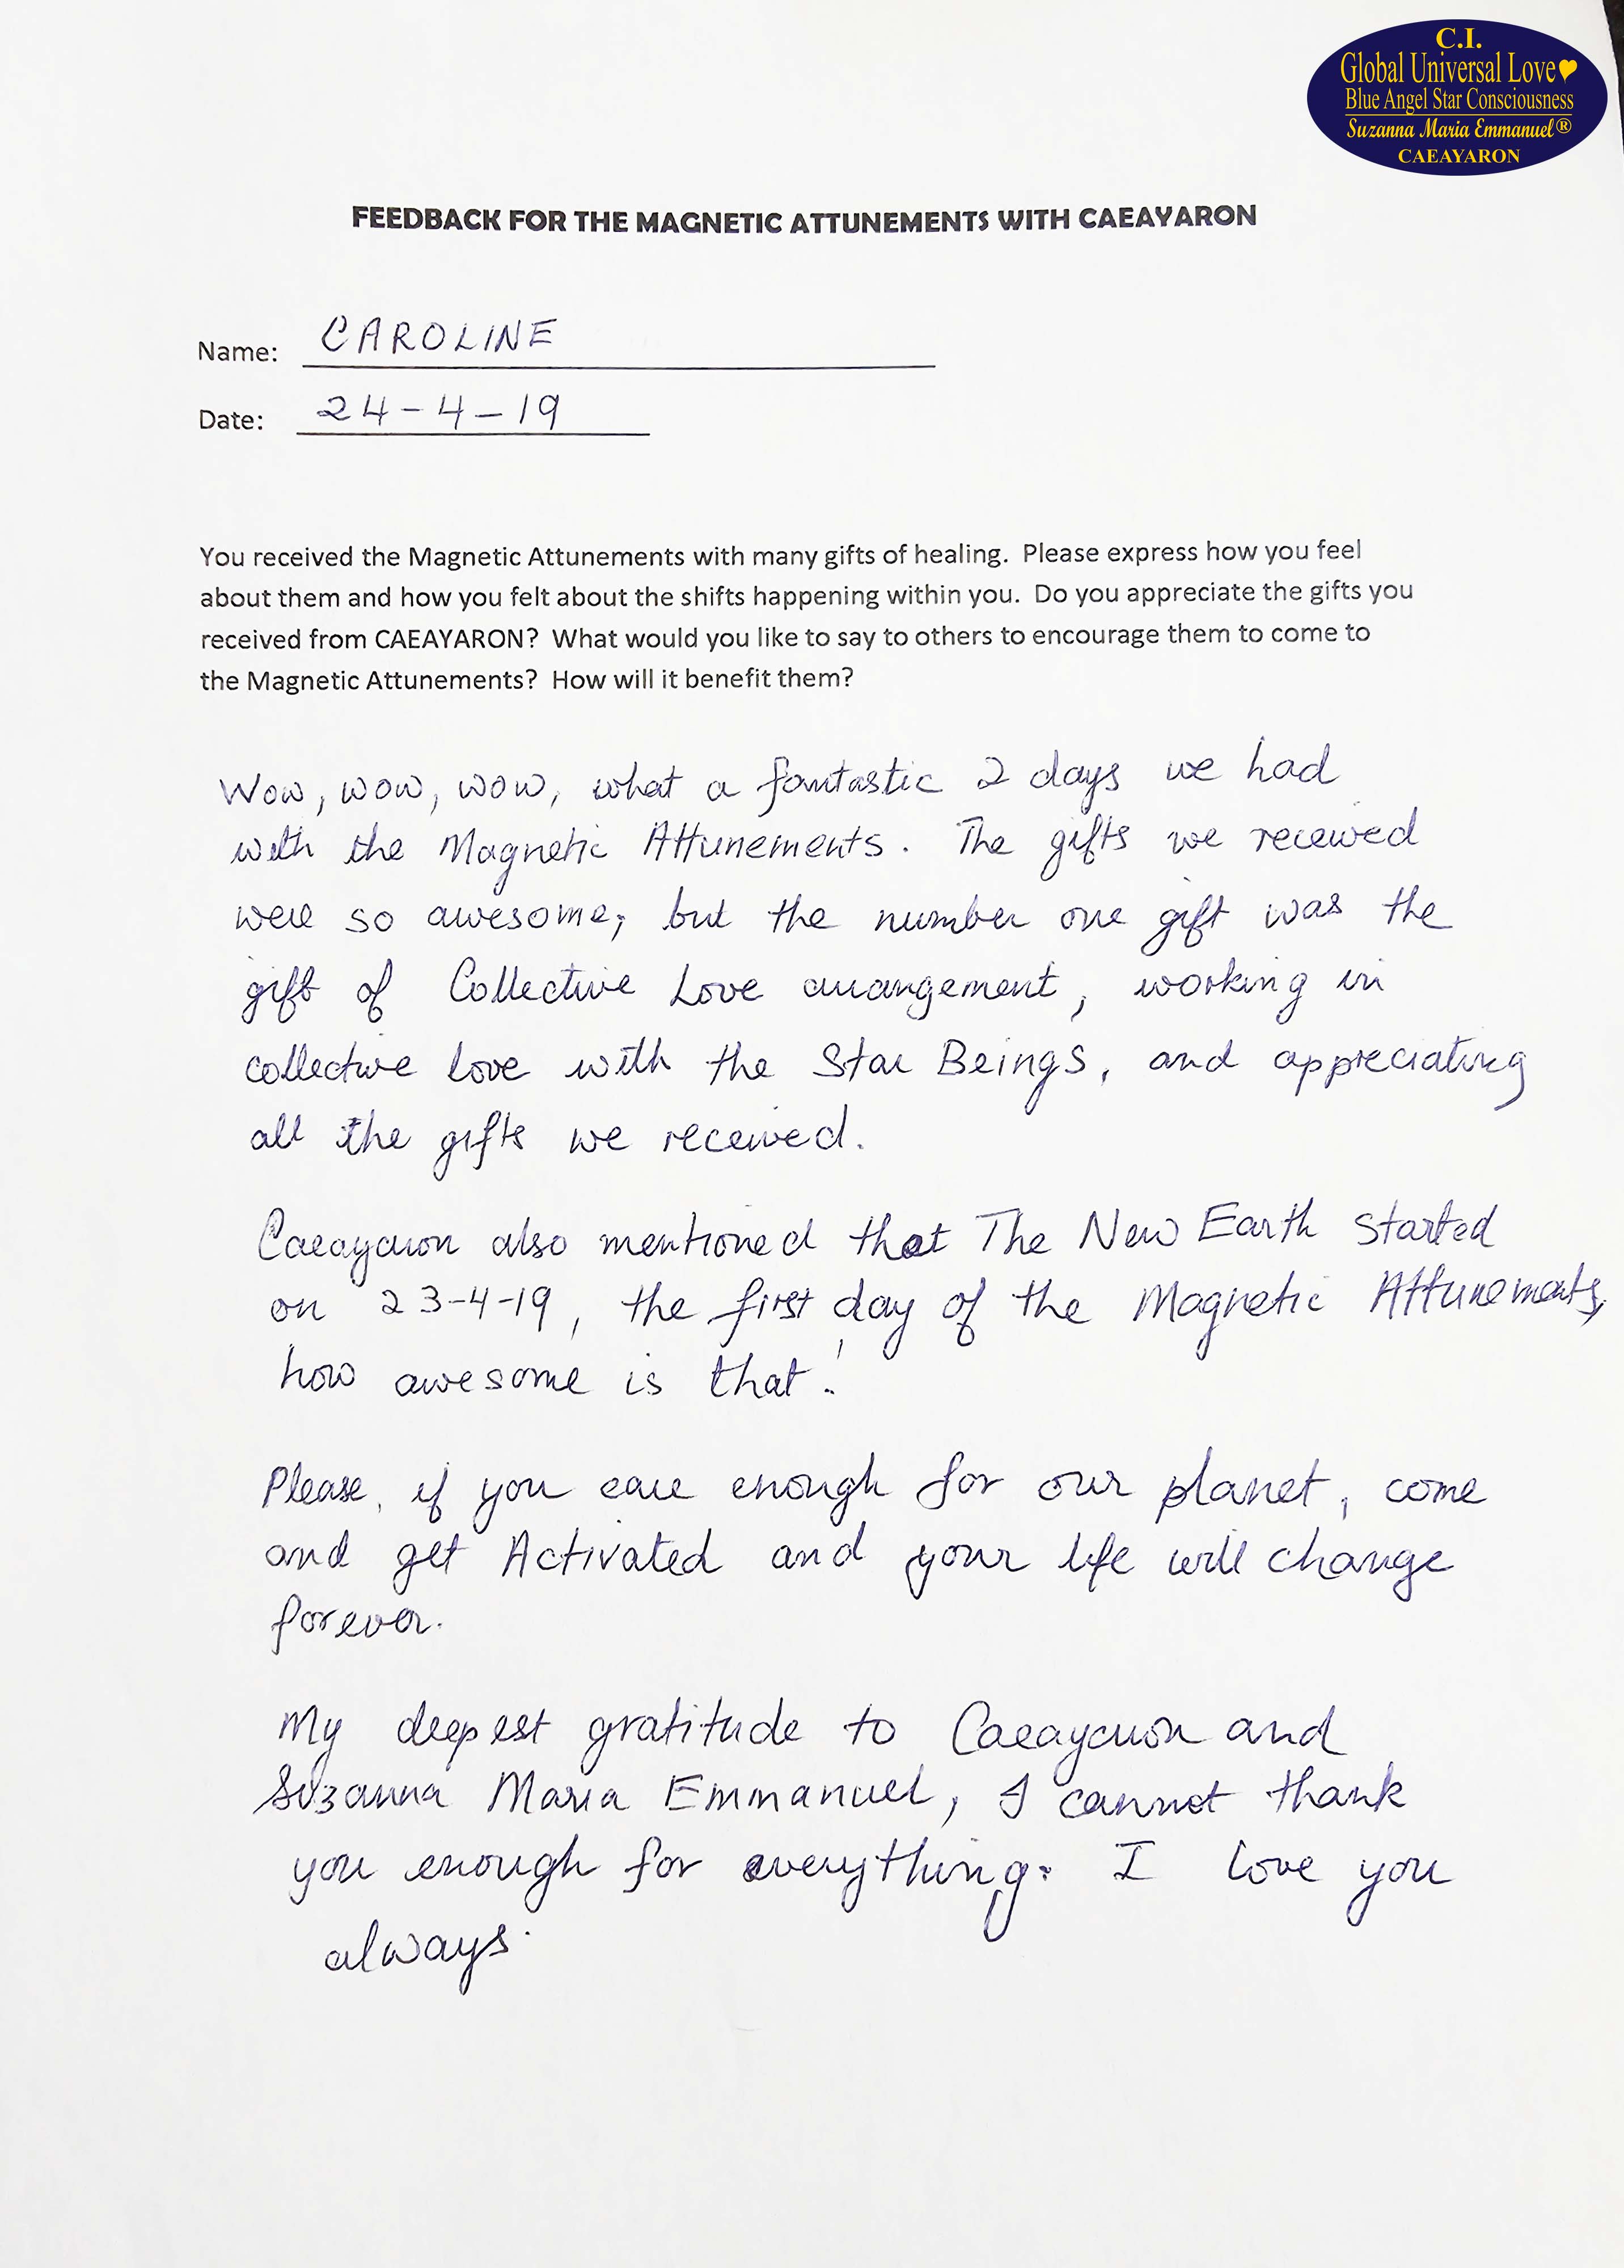 C.I.
Global Universal Love
Blue Angel Star Consciousness
Suzanna Maria Emmanuel®
CAEAYARON
FEEDBACK FOR THE MAGNETIC ATTUNEMENTS WITH CAEAYARON
Name: CAROLINE
Date: 24-4-19
You received the Magnetic Attunements with many gifts of healing. Please express how you feel
about them and how you felt about the shifts happening within you. Do you appreciate the gifts you
received from CAEAYARON? What would you like to say to others to encourage them to come to
the Magnetic Attunements? How will it benefit them?
Wow, wow, wow, what a fantastic 2 days we had
with the Magnetic Attunements. The gifts we received
were so awesome, but the number one gift was the
gift of Collective Love arrangement, working in
collective love with the Star Beings, and appreciating
all the gifts we received.
Caeayaron also mentioned that The New Earth started
on 23-4-19, the first day of the Magnetic Attunements,
how awesome is that!
Please, if you care enough for our planet, come
and get Activated and your life will change
forever.
My deepest gratitude to Caeayaron and
Suzanna Maria Emmanuel, I cannot thank
you enough for everything. I love you
always.